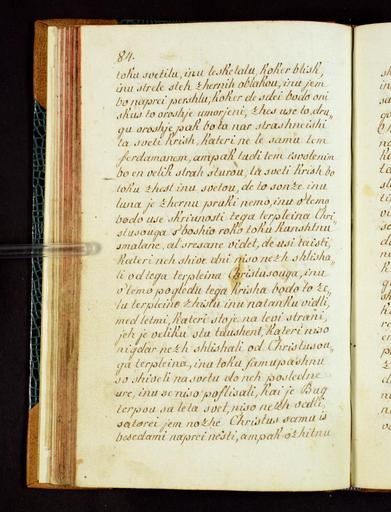 84.
toku svetilu, inu lesketalu, koker blisk,
inu strele steh zhernih oblakou, inu jem
bo naprei pershlu, koker de sdei bodo oni
skus to oroshje umorjeni, zhes use to, dru-
gu oroshje pak bo ta nar strashneishi
ta sveti krish, kateri ne le samu tem
ferdamanem, ampak tudi tem isvolenim
bo en velik strah sturou, ta sveti krish bo
toku zhest inu svetou, de to sonze inu
luna je zhernu pruki nemo, inu v'temo
bodo use skriunosti tega terpleina Chri-
stusouga s'boshio roko toku kunshtnu
smalane, al sresane videt, de usi ta isti,
kateri neh shive dni niso nezh shlisha-
li od tega terpleina Christusouga, inu
v'temo pogledu tega krisha bodo to ze-
lu terpleine zhistu inu natanku vidli,
med letmi, kateri stoje na levi strani,
jeh je veliku stu taushent, kateri niso
nigdar nezh shlishali od Christusou-
ga terpleina, inu toku samupashnu
so shiveli na svetu do neh posledne
ure, inu se niso poflisali, kai je Bug
terpou sa leta svet, niso nezh vedli,
satorei jem nozhe Christus samu is
besedami naprei nesti, ampak ozhitnu